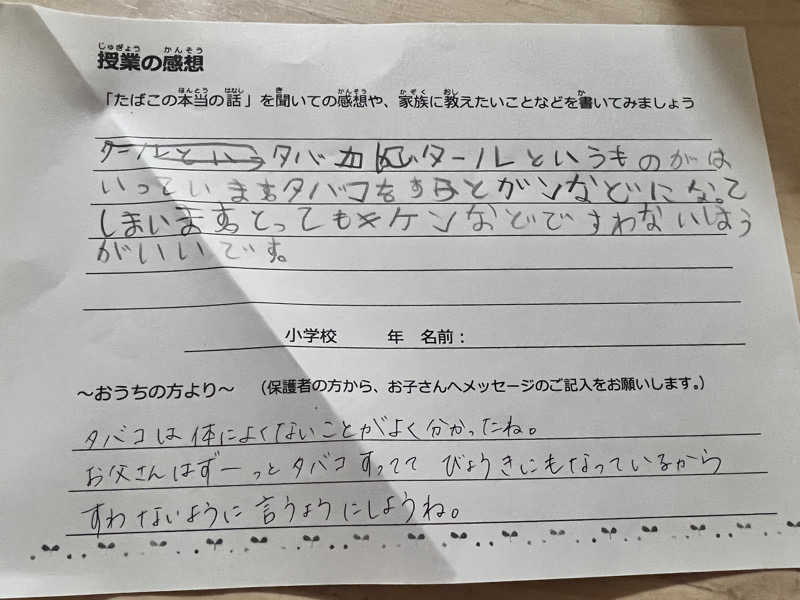 授業の感想
「たばこの本当の話」を聞いての感想や、家族に教えたいことなどを書いてみましょう
タバコにはタールというものがは
いっていますタバコをすうとガンなどになって
しまいます。とってもキケンなどですわないほう
がいいです。
小学校　年　名前：
～おうちの方より～　（保護者の方から、お子さんへメッセージのご記入をお願いします。）
タバコは体によくないことがよく分かったね。
お父さんはずーっとタバコすってて びょうきにもなっているから
すわないように言うようにしようね。